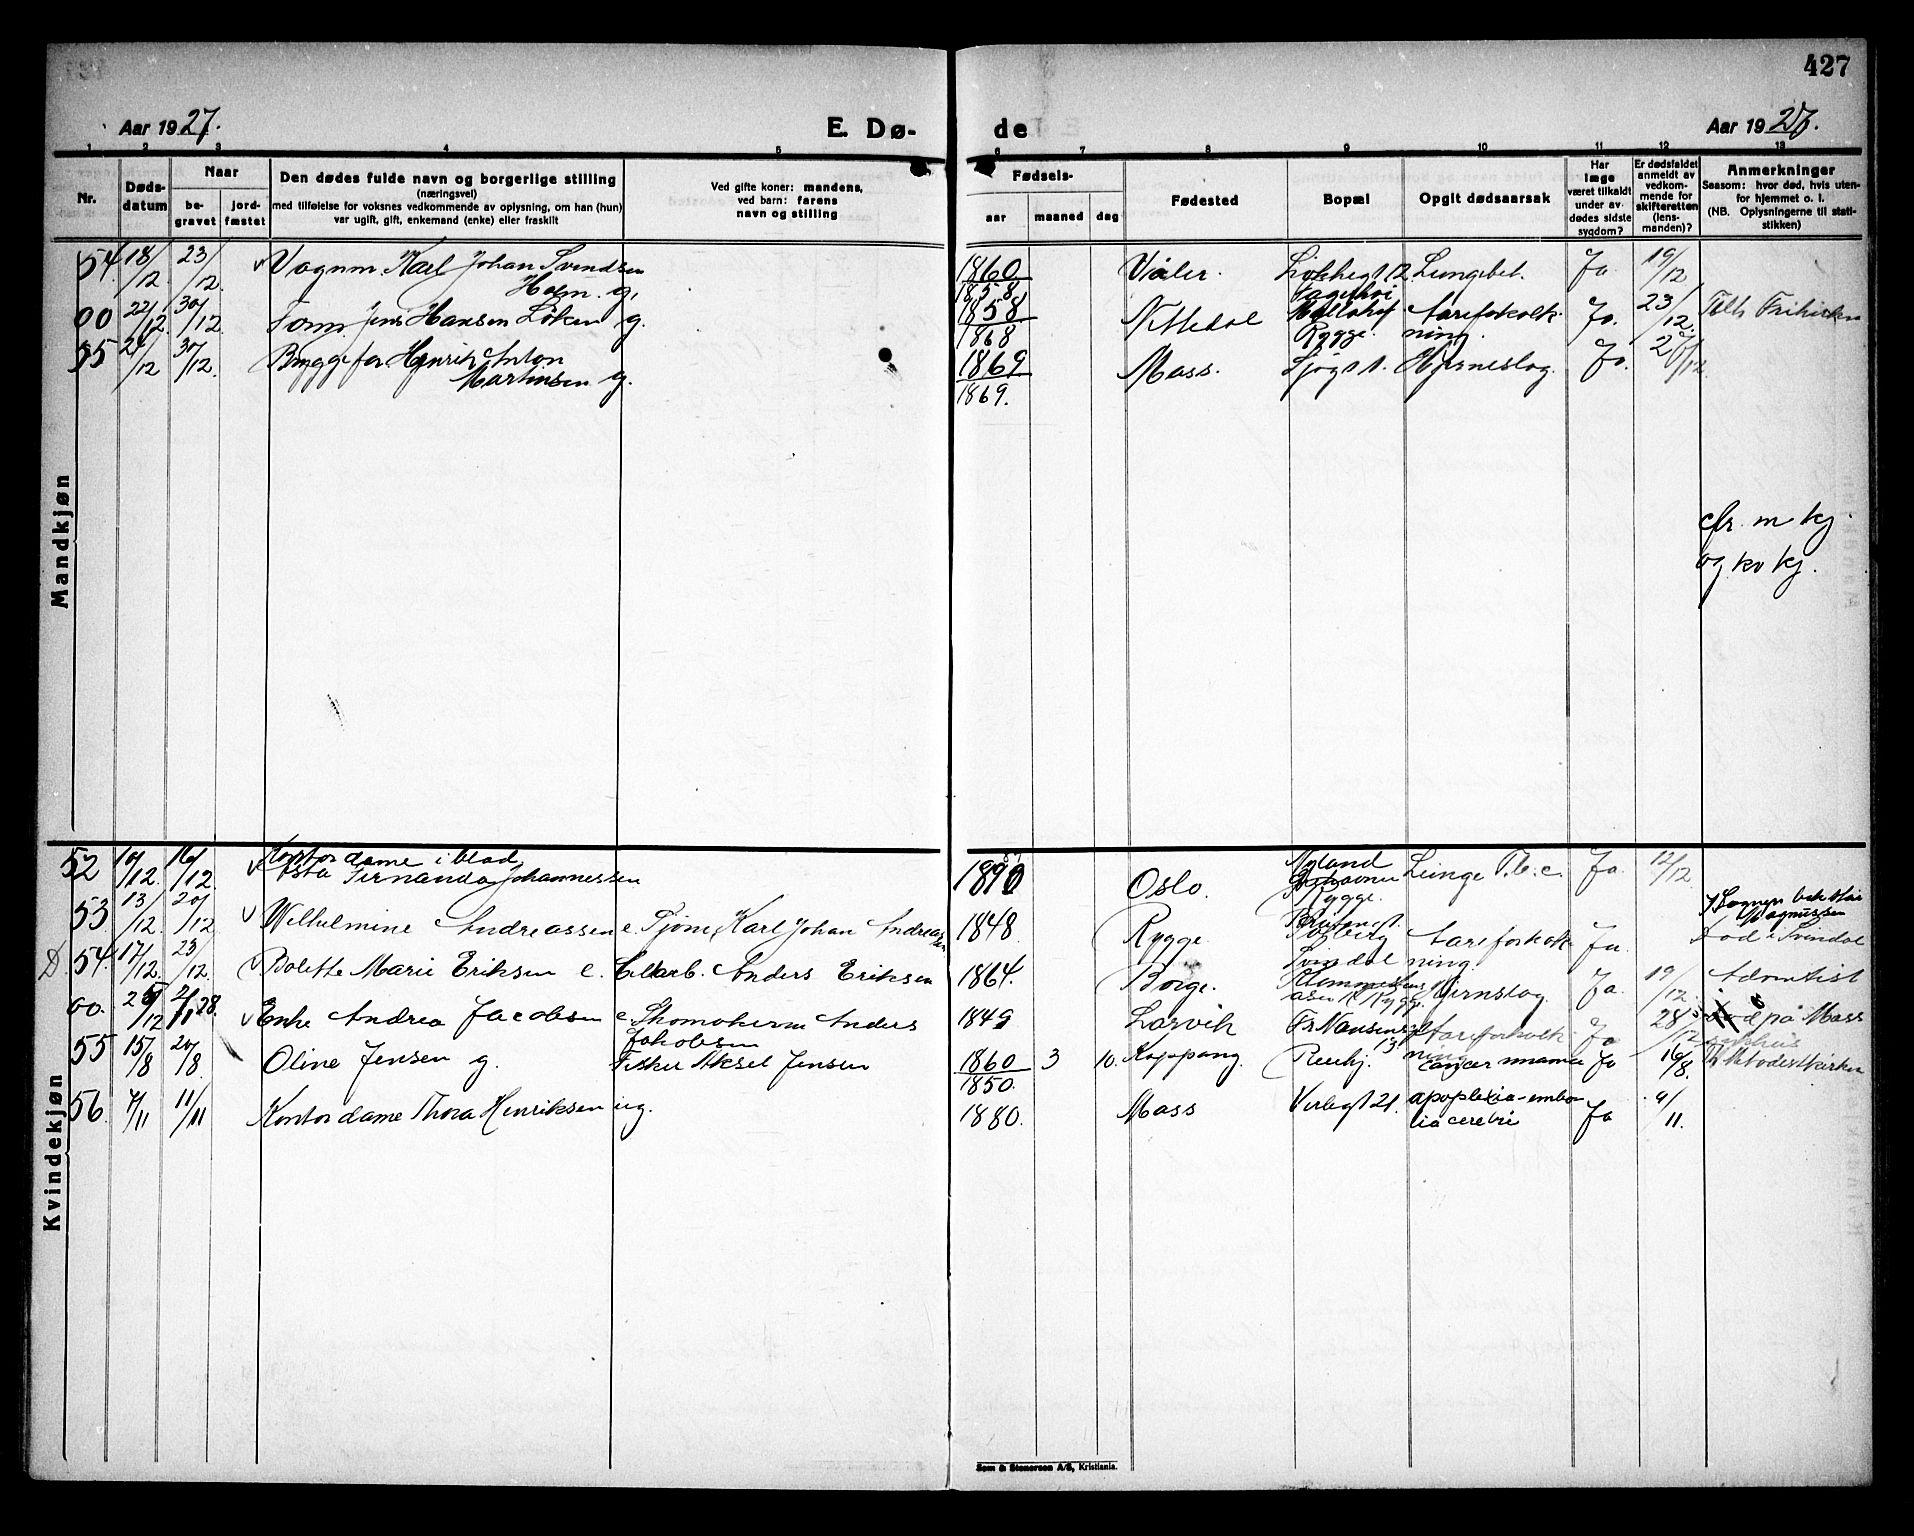 427
Aar 1927.
E. Dø-
de
Aar 1927.
1 2 3 4 5 6 7 8 9 10 11 12 13
Nr.
Døds-
datum
Naar
be-
gravet
jord-
fæstet
Den dødes fulde navn og borgerlige stilling
(næringsvei)
med tilføielse for voksnes vedkommende av oplysning, om han (hun)
var ugift, gift, enkemand (enke) eller fraskilt
Ved gifte koner: mandens,
ved barn: farens
navn og stilling
Fødsels-
aar
maaned
dag
Fødested
Bopæl
Opgit dødsaarsak
Har
læge
været tilkaldt
under av-
dødes sidste
sygdom?
Er dødsfaldet
anmeldt av
vedkom-
mende for
skifteretten
(lens-
manden)?
Anmerkninger
Saasom: hvor død, hvis uten-
for hjemmet o. l.
(NB. Oplysningerne til stati-
stikken)
Mandkjøn
54. 18/12 23/12. v Vognm. Karl Johan Svendsen
Holm. g.
1860
1858
Våler. Lökkegt 12. Lungebet. Ja 19/12
00 22/12. 30/12. Tom. Jens Hansen Löken g.
1858
1868
Nittedal
Rygge.
Aareforkalk-
ning.
Ja. 23/12. Frikirken
55 24/12 30/12. Byggefor. Henrik Anton
Martinsen g.
1869
1869.
Moss. Sjøgt 1. Hjerneslag. Ja. 27/12
cfr. m kj.
og kv kj.
Kvindekjøn
52 10/12. 16/12. v Kontordame i blad
Asta Fernanda Johannessen
1890
Oslo.
Rygge.
Lunge T.b.c. Ja 12/12
53 13/12 20/12 v Wilhelmine Andreassen e. Tjöm. Karl Johan Andreassen
1848 Rygge
Solberg
Aareforkalk-
ning.
Ja.
Magnussen
D. 54. 17/12. 23/12. v Bolette Marie Eriksen e. Celarb. Anders Eriksen
1864. Borge.
Svindal
Rygge
Hjernslag. Ja 19/12.
Död i Svindal
Adventist
00. 25/12 2/1 28. v Enke Andrea Jacobsen e. Skomakerm Anders
Jakobsen
1849 Larvik Fr. Nansensgt
13
Aareforkalk-
ning
Ja 28/12
Död på Moss
55 15/8 20/8. Oline Jensen g. Fisker Aksel Jensen
1860
1850.
3 10. Koppang. Reiehj. cancer mamma Ja 16/8. Metodistkirken
56. 7/11 11/11 Kontordame Thora Henriksen ug.
1880. Moss Verlegt 21. apoplexia-embo-
lia cerebri
Ja 9/11.
Sem & Stenersen A/S, Kristiania.